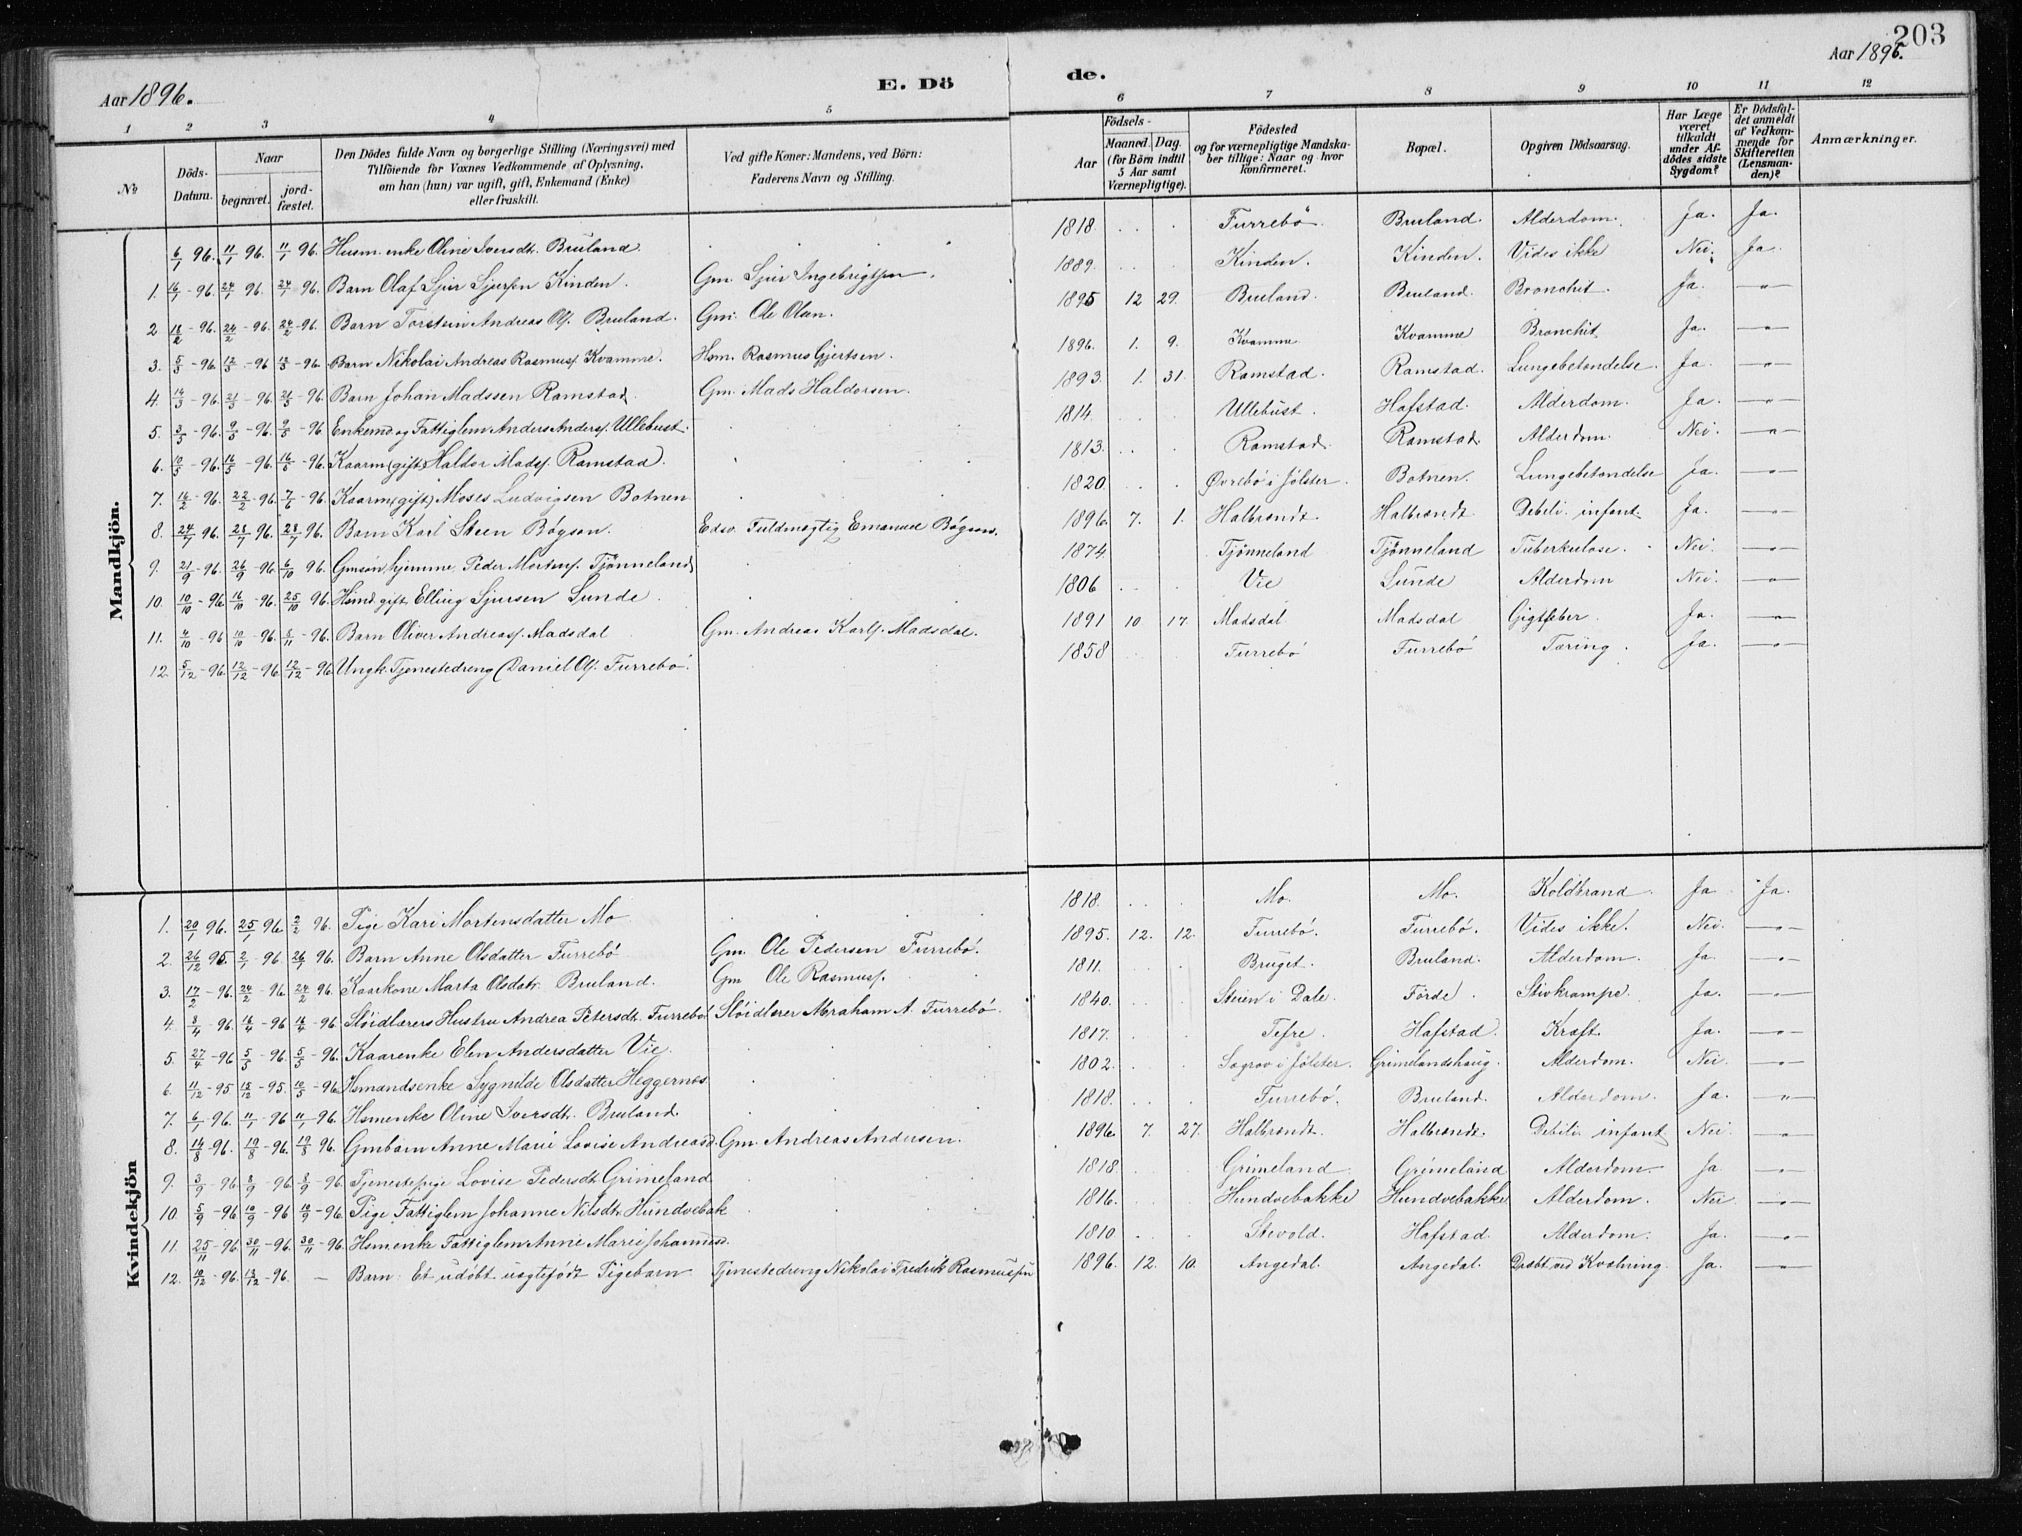 203
Aar 1896. E. Dö de. Aar 1896.
1 2 3 4 5 6 7 8 9 10 11 12
№
Döds-Datum.
Naar
begravet. jord-fæstet.
Den Dödes fulde Navn og borgerlige Stilling (Næringsvei) med Tilföiende for Voxnes Vedkommende af Oplysning, om han (hun) var ugift, gift, Enkemand (Enke) eller fraskilt.
Ved gifte Koner: Mandens, ved Börn: Faderens Navn og Stilling.
Födsels-
Aar
Maaned. Dag.
(for Börn indtil 5 Aar samt Værnepligtige).
Födested og for værnepligtige Mandskaber tillige: Naar og hvor konfirmeret.
Bopæl.
Opgiven Dödsaarsag.
Har Læge været tilkaldt under Afdödes sidste Sygdom?
Er Dödsfaldet anmeldt af Vedkommende for Skifteretten (Lensmanden)?
Anmærkninger.
Mandkjön.
6/1 96. 11/1 96. 11/1 96. Husm. enke Oline Iversdt. Bruland 1818. Furrebö Bruland. Alderdom. Ja. Ja.
1. 16/1 - 96. 24/1 96. 24/1 96. Barn Olaf Sjur Sjursen Kinden. Gm. Sjur Ingebrigtsen. 1889. Kinden. Kinden. Vides ikke Nei. Ja.
2 18/2 - 96. 24/2 - 96. 24/2 - 96. Barn Torstein Andreas Ols. Bruland. Gm. Ole Olsen. 1895 12 29. Bruland. Bruland. Bronchit. Ja. —"—
3. 5/3 - 96. 12/3 - 96 12/3 - 96. Barn Nikolai Andreas Rasmuss. Kvamme. Hsm. Rasmus Gjertsen. 1896. 1. 9. Kvamme Kvamme Bronchit Ja. —"—
4. 14/3 - 96. 21/3 - 96. 21/3 - 96. Barn Johan Madssen Ramstad. Gm. Mads Haldorsen. 1893. 1. 31. Ramstad. Ramstad. Lungebetændelse. Ja. —"—
5. 3/5 - 96. 9/5 - 96. 9/5 - 96. Enkemd og Fattiglem Anders Anders. Ullebust. 1814. Ullebust. Hafstad. Alderdom. Ja. —"—
6. 10/5 - 96. 16/5 - 96. 16/5 - 96. Kaarm (gift) Haldor Mads. Ramstad. 1813. Ramstad. Ramstad. Alderdom. Nei. —"—
7. 16/2 - 96. 22/2 - 96. 7/6 - 96. Kaarm (gift) Moses Ludvigsen Botnen 1820. Øvrebö i Jölster. Botnen. Lungebetændelse Ja. —"—
8. 24/7 96. 28/7 96. 28/7 96. Barn Karl Steen Bógson. Edsv. Fuldmægtig Emanuel Bógson. 1896. 7. 1. Halbrendt. Halbrendt Debili. infant. Ja. —"—
9. 21/9 - 96. 26/9 - 96. 6/10 96. Gmsøn hjemme Peder Mortens. Tjönneland 1874. Tjønneland Tjønneland Tuberkulose. Nei. —"—
10. 10/10 - 96 16/10 - 96. 25/10 96. Hsmd. gift. Elling Sjursen Sunde. 1806 Vie Sunde Alderdom Nei. —"—
11. 4/10 - 96 10/10 - 96. 5/11 - 96. Barn Oliver Andreass. Madsdal Gm. Andreas Karls. Madsdal. 1891 10 17. Madsdal Madsdal Gigtfeber. Ja. —"—
12. 5/12 - 96. 12/12 - 96. 12/12 - 96. Ungk. Tjenestedreng (Daniel Ols. Furrebö. 1858 Furrebö Furrebö Tæring. Ja. —"—
Kvindekjön
1. 20/1 96. 25/1 96. 2/2 96. Pige Kari Mortensdatter Mo 1818. Mo. Mo. Koldbrand. Ja Ja.
2. 26/12 95. 2/1 96. 26/1 96. Barn Anne Olsdatter Furrebö Gm. Ole Pedersen Furrebö. 1895. 12. 12. Furrebö. Furrebö. Vides ikke. Nei. —"—
3. 17/2 - 96. 24/2 - 96 24/2 96. Kaarkone Marta Olsdatr. Bruland. Gm Ole Rasmuss. 1811. Bruget. Bruland. Alderdom. Ja. —"—
4. 8/4 - 96. 16/4 - 96 16/4 - 96. Slöidlærers Hustru Andrea Petersdt. Furrebö. Slöidlærer Abraham A. Furrebö. 1840. Steien i Dale. Förde. Stivkrampe. Ja. —"—
5. 27/4 - 96 5/5 - 96. 5/5 - 96. Kaarenke Elen Andersdatter Vie. 1817. Tefre. Hafstad. Kræft. Ja. —"—
6. 11/12 - 95 15/12 - 95. 10/5 - 96. Hsmandsenke Sygnilde Olsdatter Heggernes. 1802. Søgrov i Jölster. Grimelandshaug. Alderdom. Nei. —"—
7. 6/1 - 96. 11/1 - 96 11/1 - 96. Hsmenke Oline Iversdt. Bruland. 1818. Furrebö. Bruland. Alderdom. Ja. —"—
8. 14/8 - 96. 19/8 - 96. 19/8 96. Gmbarn Anne Marie Lovise Andreasd. Gm. Andreas Andersen. 1896. 7. 27. Halbrendt. Halbrendt. Debili. infant Nei. —"—
9. 3/9 - 96 8/9 - 96. 8/9 - 96. Tjenestepige Lovise Pedersdt. Grimeland 1818. Grimeland. Grimeland Alderdom. Ja. —"—
10. 5/9 - 96. 10/9 - 96 10/9 - 96. Pige Fattiglem Johanne Nilsdt. Hundvebak 1816. Hundvebakke Hundvebakke Alderdom. Nei. —"—
11. 25/11 - 96. 30/11 - 96. 30/11 - 96. Hsmenke Fattiglem Anne Marie Johannesd. 1810. Stevold. Hafstad. Alderdom. Ja. —"—
12. 10/12 - 96. 18/12 - 96. — Barn: Et udöbt uægtefödt Pigebarn Tjenestedreng Nikolai Fredrik Rasmussen 1896. 12. 10. Angedal. Angedal. Dræbt ved Kvælning. Ja. —"—